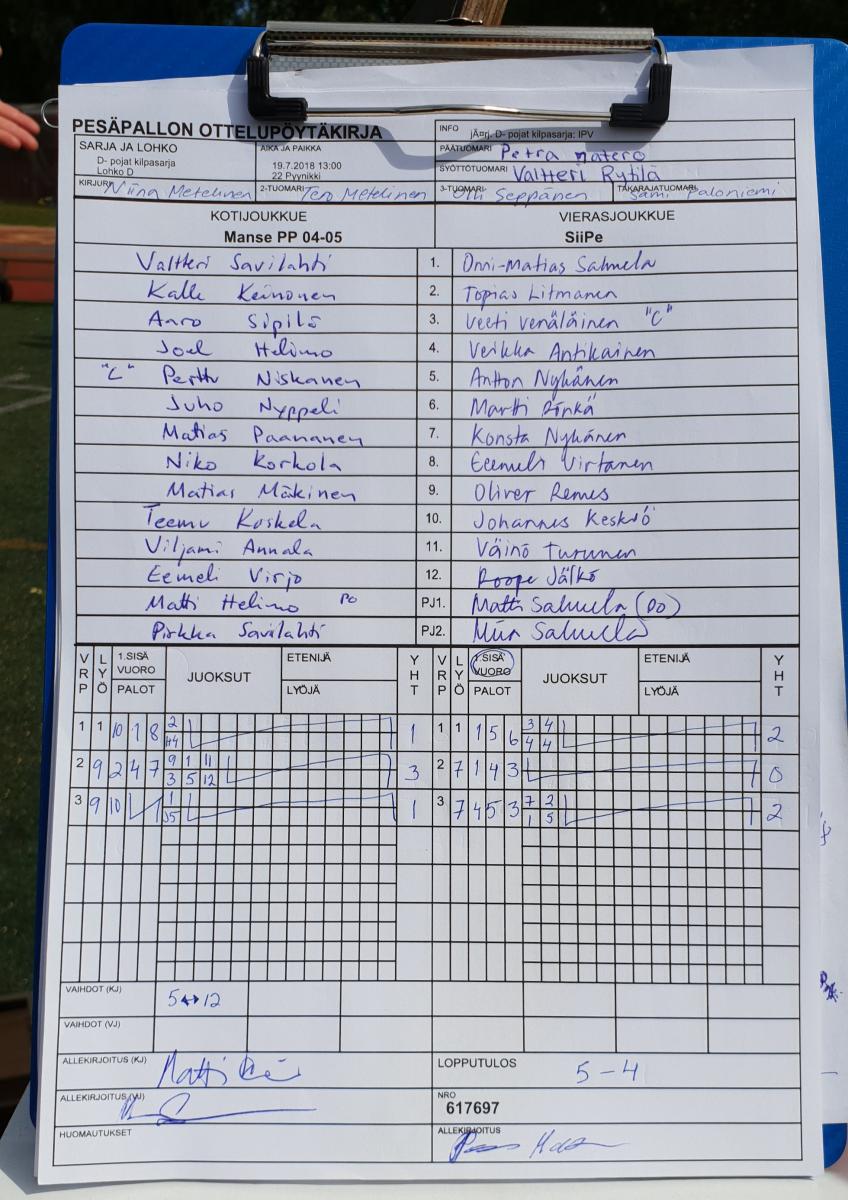 PESÄPALLON OTTELUPÖYTÄKIRJA
INFO jĤrj. D- pojat kilpasarja: IPV
SARJA JA LOHKO
D- pojat kilpasarja
Lohko D
AIKA JA PAIKKA
19.7.2018 13:00
22 Pyynikki
PÄÄTUOMARI Petra Matero
SYÖTTÖTUOMARI Valtteri Rytilä
KIRJURI Niina Metelinen
2-TUOMARI Tero Metelinen
3-TUOMARI Olli Seppänen
TAKARAJATUOMARI Sami Paloniemi
KOTIJOUKKUE VIERASJOUKKUE
Manse PP 04-05 SiiPe
Valtteri Savilahti 1. Onni-Matias Salmela
Kalle Keinonen 2. Topias Litmanen
Aaro Sipilä 3. Veeti Venäläinen "C"
Joel Helimo 4. Veikka Antikainen
"C" Perttu Niskanen 5. Antton Nykänen
Juho Nyppeli 6. Martti Rönkä
Matias Paananen 7. Konsta Nykänen
Niko Korkola 8. Eemeli Virtanen
Matias Mäkinen 9. Oliver Remes
Teemu Koskela 10. Johannes
Viljami Annala 11. Väinö Turunen
Eemeli Virjo 12. Roope
Matti Helimo PO PJ1. Matti Salmela (PO)
Pirkka Savilahti PJ2. Salmela
VRP LYÖ 1.SISÄ VUORO PALOT JUOKSUT ETENIJÄ LYÖJÄ YHT VRP LYÖ 1.SISÄ VUORO PALOT JUOKSUT ETENIJÄ LYÖJÄ YHT
1 1 10 1 8 2 1 1 1 1 5 6 3 4 2
4 4
2 9 2 4 7 9 1 11 3 2 7 1 4 3 0
3 5 12
3 9 10 1 1 3 7 4 5 3 7 2 2
1 5
VAIHDOT (KJ) 5↔12
VAIHDOT (VJ)
ALLEKIRJOITUS (KJ) Matti
LOPPUTULOS 5 - 4
ALLEKIRJOITUS (VJ)
NRO
617697
HUOMAUTUKSET
ALLEKIRJOITUS